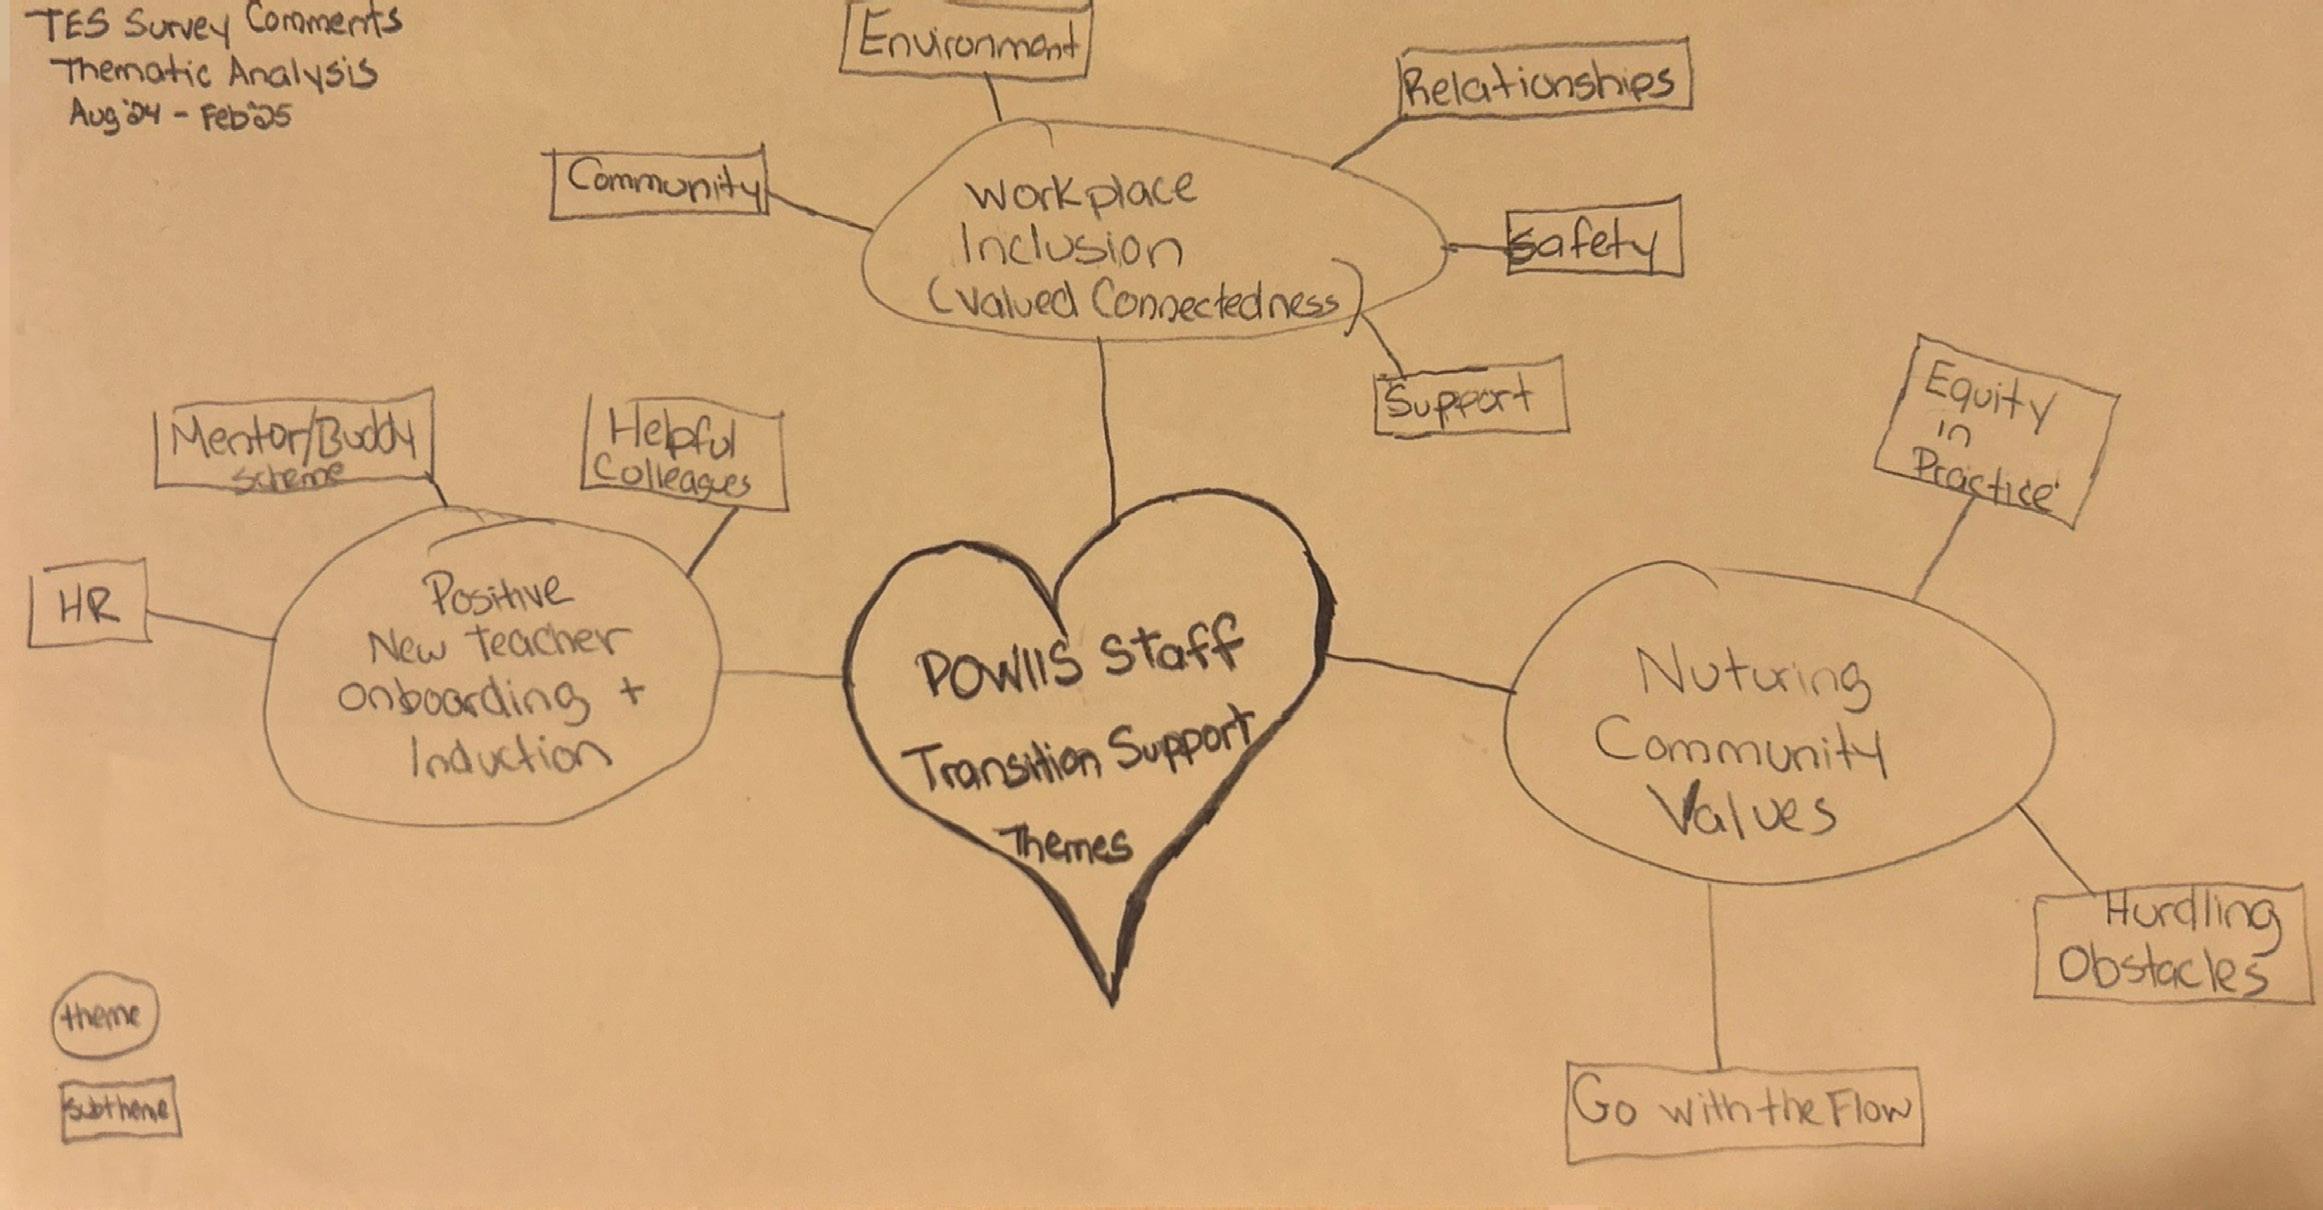 TES Survey Comments
Thematic Analysis
Aug'24 - Feb'25
Environment
Relationships
Community
Workplace
Inclusion
(Valued Connectedness)
Safety
Support
Mentor/Buddy
scheme
Helpful
Colleagues
HR
Positive
New teacher
onboarding +
Induction
POWIIS Staff
Transition Support
Themes
Equity
in
Practice
Nuturing
Community
Values
Hurdling
Obstacles
Go with the Flow
theme
subtheme